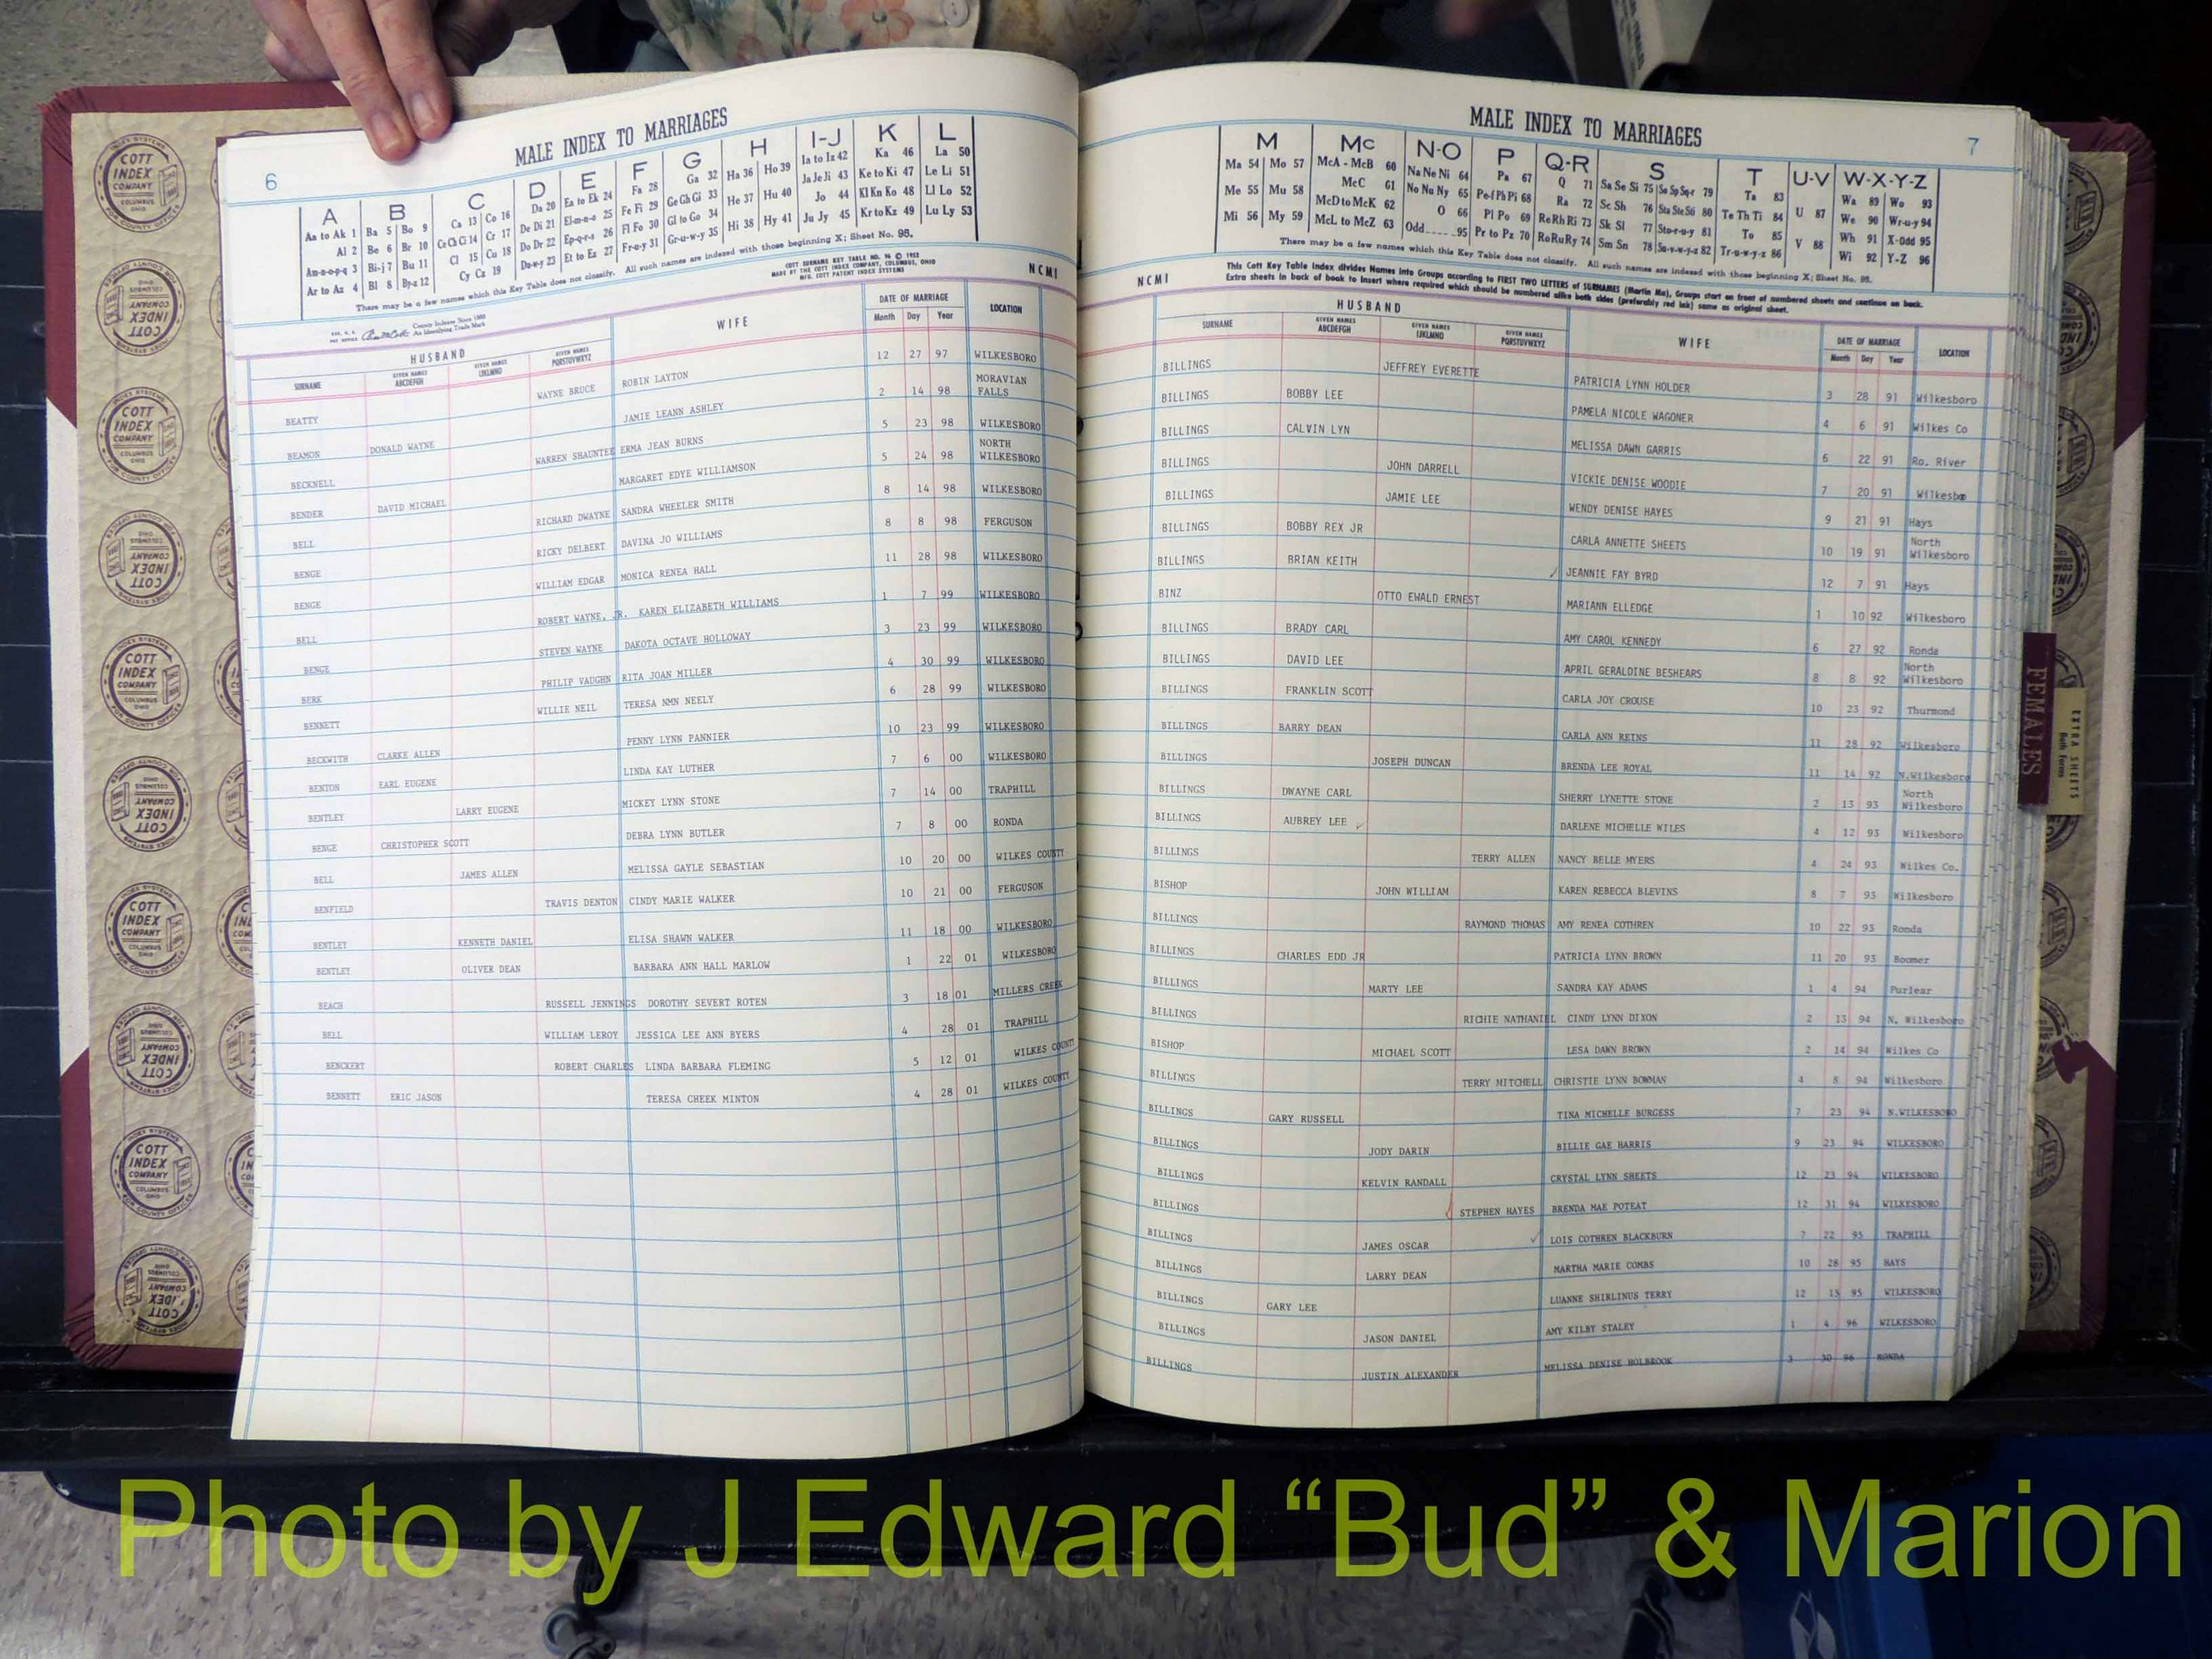 MALE INDEX TO MARRIAGES
6
A B C D E F G H I-J K L
Aa to Ak 1 Ba 5 Bo 9 Ca 13 Co 16 Da 20 Ea to Ek 24 Fa 28 Ga 32 Ha 36 Ho 39 Ia to Iz 42 Ka 46 La 50
Al 2 Be 6 Br 10 Ce Ch Ci 14 Cr 17 De Di 21 El-m-n-o 25 Fe Fi 29 Ge Gh Gi 33 He 37 Hu 40 Ja Je Ji 43 Ke to Ki 47 Le Li 51
Am-n-o-p-q 3 Bi-j 7 Bu 11 Cl 15 Cu 18 Do Dr 22 Ep-q-r-s 26 Fl Fo 30 Gl to Go 34 Hi 38 Hy 41 Jo 44 Kl Kn Ko 48 Ll Lo 52
Ar to Az 4 Bl 8 By-z 12 Cy Cz 19 Du-w-y 23 Et to Ez 27 Fr-u-y 31 Gr-u-w-y 35 Ju Jy 45 Kr to Kz 49 Lu Ly 53
There may be a few names which this Key Table does not classify. All such names are indexed with those beginning X; Sheet No. 95.
COTT SURNAME KEY TABLE NO. 96 © 1952
MADE BY THE COTT INDEX COMPANY, COLUMBUS, OHIO
MFG. COTT PATENT INDEX SYSTEMS
NCMI
County Indexes Since 1888
An Identifying Trade Mark
HUSBAND WIFE DATE OF MARRIAGE LOCATION
SURNAME GIVEN NAMES ABCDEFGH GIVEN NAMES IJKLMNO GIVEN NAMES PQRSTUVWXYZ Month Day Year
BEATTY WAYNE BRUCE ROBIN LAYTON 12 27 97 WILKESBORO
BEAMON DONALD WAYNE JAMIE LEANN ASHLEY 2 14 98 MORAVIAN FALLS
BECKNELL WARREN SHAUNTEE ERMA JEAN BURNS 5 23 98 WILKESBORO
BENDER DAVID MICHAEL MARGARET EDYE WILLIAMSON 5 24 98 NORTH WILKESBORO
BELL RICHARD DWAYNE SANDRA WHEELER SMITH 8 14 98 WILKESBORO
BENGE RICKY DELBERT DAVINA JO WILLIAMS 8 8 98 FERGUSON
BENGE WILLIAM EDGAR MONICA RENEA HALL 11 28 98 WILKESBORO
BELL ROBERT WAYNE, JR. KAREN ELIZABETH WILLIAMS 1 7 99 WILKESBORO
BENGE STEVEN WAYNE DAKOTA OCTAVE HOLLOWAY 3 23 99 WILKESBORO
BERK PHILIP VAUGHN RITA JOAN MILLER 4 30 99 WILKESBORO
BENNETT WILLIE NEIL TERESA NMN NEELY 6 28 99 WILKESBORO
BECKWITH CLARKE ALLEN PENNY LYNN PANNIER 10 23 99 WILKESBORO
BENTON EARL EUGENE LINDA KAY LUTHER 7 6 00 WILKESBORO
BENTLEY LARRY EUGENE MICKEY LYNN STONE 7 14 00 TRAPHILL
BENGE CHRISTOPHER SCOTT DEBRA LYNN BUTLER 7 8 00 RONDA
BELL JAMES ALLEN MELISSA GAYLE SEBASTIAN 10 20 00 WILKES COUNTY
BENFIELD TRAVIS DENTON CINDY MARIE WALKER 10 21 00 FERGUSON
BENTLEY KENNETH DANIEL ELISA SHAWN WALKER 11 18 00 WILKESBORO
BENTLEY OLIVER DEAN BARBARA ANN HALL MARLOW 1 22 01 WILKESBORO
BEACH RUSSELL JENNINGS DOROTHY SEVERT ROTEN 3 18 01 MILLERS CREEK
BELL WILLIAM LEROY JESSICA LEE ANN BYERS 4 28 01 TRAPHILL
BENCKERT ROBERT CHARLES LINDA BARBARA FLEMING 5 12 01 WILKES COUNTY
BENNETT ERIC JASON TERESA CHEEK MINTON 4 28 01 WILKES COUNTY
MALE INDEX TO MARRIAGES
7
M Mc N-O P Q-R S T U-V W-X-Y-Z
Ma 54 Mo 57 McA - McB 60 Na Ne Ni 64 Pa 67 Q 71 Sa Se Si 75 So Sp Sq-r 79 Ta 83 Wa 89 Wo 93
Me 55 Mu 58 McC 61 No Nu Ny 65 Pe-f Ph Pi 68 Ra 72 Sc Sh 76 Sta Ste Sti 80 Te Th Ti 84 U 87 We 90 Wr-u-y 94
Mi 56 My 59 McD to McK 62 O 66 Pl Po 69 Re Rh Ri 73 Sk Sl 77 Sto-r-u-y 81 To 85 Wh 91 X-Odd 95
McL to McZ 63 Odd 95 Pr to Pz 70 Ro Ru Ry 74 Sm Sn 78 Su-v-w-y-z 82 Tr-u-w-y-z 86 V 88 Wi 92 Y-Z 96
There may be a few names which this Key Table does not classify. All such names are indexed with those beginning X; Sheet No. 95.
NCMI
This Cott Key Table Index divides Names into Groups according to FIRST TWO LETTERS of SURNAMES (Martin Ma), Groups start on front of numbered sheets and continue on back.
Extra sheets in back of book to insert where required which should be numbered alike both sides (preferably red ink) same as original sheet.
HUSBAND WIFE DATE OF MARRIAGE LOCATION
SURNAME GIVEN NAMES ABCDEFGH GIVEN NAMES IJKLMNO GIVEN NAMES PQRSTUVWXYZ Month Day Year
BILLINGS JEFFREY EVERETTE PATRICIA LYNN HOLDER 3 28 91 Wilkesboro
BILLINGS BOBBY LEE PAMELA NICOLE WAGONER 4 6 91 Wilkes Co
BILLINGS CALVIN LYN MELISSA DAWN GARRIS 6 22 91 Ro. River
BILLINGS JOHN DARRELL VICKIE DENISE WOODIE 7 20 91 Wilkesboro
BILLINGS JAMIE LEE WENDY DENISE HAYES 9 21 91 Hays
BILLINGS BOBBY REX JR CARLA ANNETTE SHEETS 10 19 91 North Wilkesboro
BILLINGS BRIAN KEITH JEANNIE FAY BYRD 12 7 91 Hays
BINZ OTTO EWALD ERNEST MARIANN ELLEDGE 1 10 92 Wilkesboro
BILLINGS BRADY CARL AMY CAROL KENNEDY 6 27 92 Ronda
BILLINGS DAVID LEE APRIL GERALDINE BESHEARS 8 8 92 North Wilkesboro
BILLINGS FRANKLIN SCOTT CARLA JOY CROUSE 10 23 92 Thurmond
BILLINGS BARRY DEAN CARLA ANN REINS 11 28 92 Wilkesboro
BILLINGS JOSEPH DUNCAN BRENDA LEE ROYAL 11 14 92 N.Wilkesboro
BILLINGS DWAYNE CARL SHERRY LYNETTE STONE 2 13 93 North Wilkesboro
BILLINGS AUBREY LEE DARLENE MICHELLE WILES 4 12 93 Wilkesboro
BILLINGS TERRY ALLEN NANCY BELLE MYERS 4 24 93 Wilkes Co.
BISHOP JOHN WILLIAM KAREN REBECCA BLEVINS 8 7 93 Wilkesboro
BILLINGS RAYMOND THOMAS AMY RENEA COTHREN 10 22 93 Ronda
BILLINGS CHARLES EDD JR PATRICIA LYNN BROWN 11 20 93 Boomer
BILLINGS MARTY LEE SANDRA KAY ADAMS 1 4 94 Purlear
BILLINGS RICHIE NATHANIEL CINDY LYNN DIXON 2 13 94 N. Wilkesboro
BISHOP MICHAEL SCOTT LESA DAWN BROWN 2 14 94 Wilkes Co
BILLINGS TERRY MITCHELL CHRISTIE LYNN BOWMAN 4 8 94 Wilkesboro
BILLINGS GARY RUSSELL TINA MICHELLE BURGESS 7 23 94 N.WILKESBORO
BILLINGS JODY DARIN BILLIE GAE HARRIS 9 23 94 WILKESBORO
BILLINGS KELVIN RANDALL CRYSTAL LYNN SHEETS 12 23 94 WILKESBORO
BILLINGS STEPHEN HAYES BRENDA MAE POTEAT 12 31 94 WILKESBORO
BILLINGS JAMES OSCAR LOIS COTHREN BLACKBURN 7 22 95 TRAPHILL
BILLINGS LARRY DEAN MARTHA MARIE COMBS 10 28 95 HAYS
BILLINGS GARY LEE LUANNE SHIRLINUS TERRY 12 15 95 WILKESBORO
BILLINGS JASON DANIEL AMY KILBY STALEY 1 4 96 WILKESBORO
BILLINGS JUSTIN ALEXANDER MELISSA DENISE HOLBROOK 3 30 96 RONDA
FEMALES
EXTRA SHEETS
Both Forms
COTT INDEX COMPANY COLUMBUS OHIO
FOR COUNTY OFFICES
Photo by J Edward “Bud” & Marion